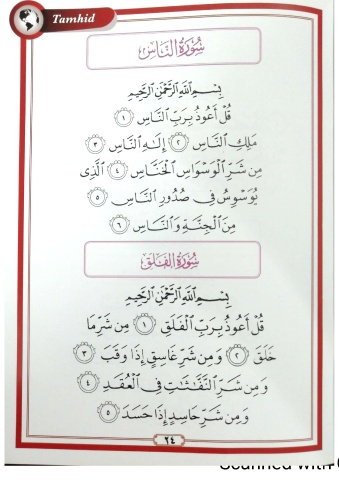 Tamhid
سُورَةُ النَّاسِ
بِسْمِ اللَّهِ الرَّحْمَٰنِ الرَّحِيمِ
قُلْ أَعُوذُ بِرَبِّ النَّاسِ ١
مَلِكِ النَّاسِ ٢ إِلَٰهِ النَّاسِ ٣
مِن شَرِّ الْوَسْوَاسِ الْخَنَّاسِ ٤ الَّذِي
يُوَسْوِسُ فِي صُدُورِ النَّاسِ ٥
مِنَ الْجِنَّةِ وَالنَّاسِ ٦
سُورَةُ الفَلَقِ
بِسْمِ اللَّهِ الرَّحْمَٰنِ الرَّحِيمِ
قُلْ أَعُوذُ بِرَبِّ الْفَلَقِ ١ مِن شَرِّ مَا
خَلَقَ ٢ وَمِن شَرِّ غَاسِقٍ إِذَا وَقَبَ ٣
وَمِن شَرِّ النَّفَّٰثَٰتِ فِي الْعُقَدِ ٤
وَمِن شَرِّ حَاسِدٍ إِذَا حَسَدَ ٥
٢٤
Scanned with